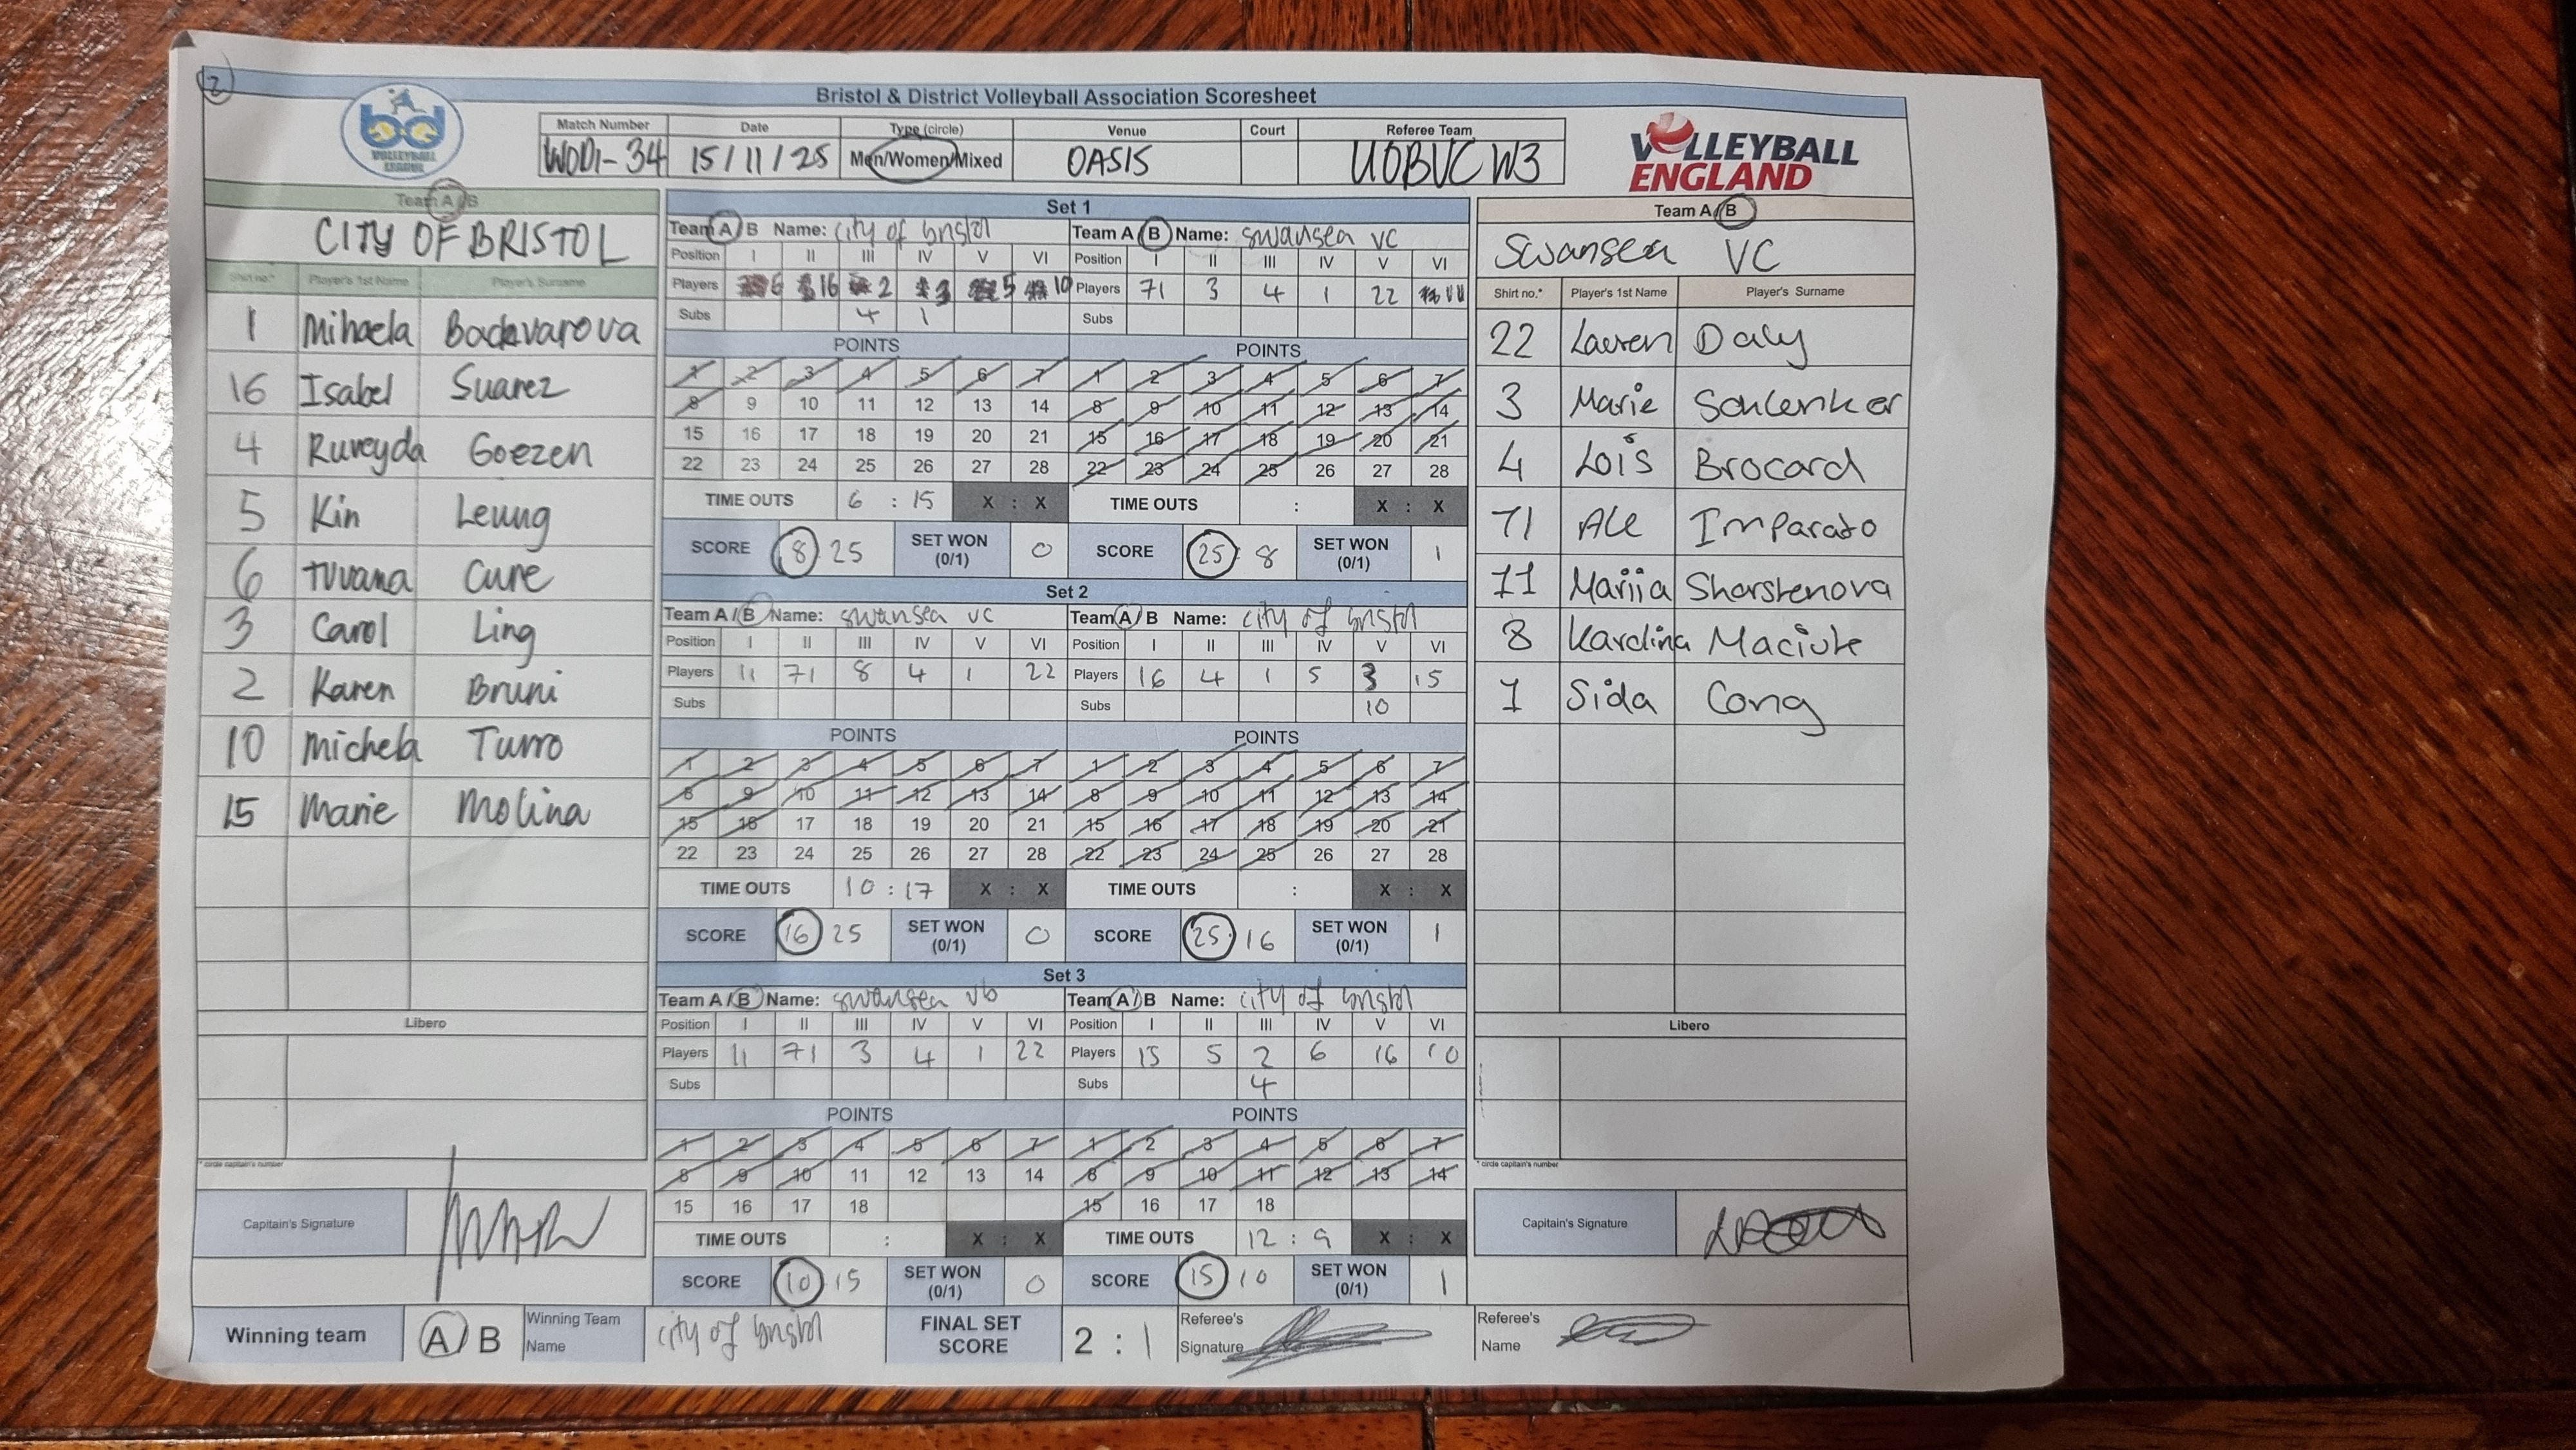 2
Bristol & District Volleyball Association Scoresheet
bd VOLLEYBALL LEAGUE
VOLLEYBALL ENGLAND
Match Number Date Type (circle) Venue Court Referee Team
WOD1-34 15/11/25 Men/Women/Mixed OASIS UOBVC W3
Team A/B
CITY OF BRISTOL
Shirt no.* Player's 1st Name Player's Surname
1 Mihaela Backvarova
16 Isabel Suarez
4 Ruveyda Goezen
5 Kin Leung
6 Tuvana Cure
3 Carol Ling
2 Karen Bruni
10 Michela Turro
15 Marie Molina
Libero
* circle captain's number
Capitain's Signature
Set 1
Team A/B Name: city of bristol Team A/B Name: swansea vc
Position I II III IV V VI Position I II III IV V VI
Players 6 16 2 3 5 10 Players 71 3 4 1 22 11
Subs 4 1 Subs
POINTS POINTS
1 2 3 4 5 6 7 1 2 3 4 5 6 7
8 9 10 11 12 13 14 8 9 10 11 12 13 14
15 16 17 18 19 20 21 15 16 17 18 19 20 21
22 23 24 25 26 27 28 22 23 24 25 26 27 28
TIME OUTS 6 : 15 X : X TIME OUTS : X : X
SCORE 8 25 SET WON (0/1) 0 SCORE 25 : 8 SET WON (0/1) 1
Set 2
Team A/B Name: swansea vc Team A/B Name: city of bristol
Position I II III IV V VI Position I II III IV V VI
Players 11 71 8 4 1 22 Players 16 4 1 5 3 15
Subs Subs 10
POINTS POINTS
1 2 3 4 5 6 7 1 2 3 4 5 6 7
8 9 10 11 12 13 14 8 9 10 11 12 13 14
15 16 17 18 19 20 21 15 16 17 18 19 20 21
22 23 24 25 26 27 28 22 23 24 25 26 27 28
TIME OUTS 10 : 17 X : X TIME OUTS : X : X
SCORE 16 25 SET WON (0/1) 0 SCORE 25 16 SET WON (0/1) 1
Set 3
Team A/B Name: swansea vb Team A/B Name: city of bristol
Position I II III IV V VI Position I II III IV V VI
Players 11 71 3 4 1 22 Players 15 5 2 6 16 10
Subs Subs 4
POINTS POINTS
1 2 3 4 5 6 7 1 2 3 4 5 6 7
8 9 10 11 12 13 14 8 9 10 11 12 13 14
15 16 17 18 15 16 17 18
TIME OUTS : X : X TIME OUTS 12 : 9 X : X
SCORE 10 15 SET WON (0/1) 0 SCORE 15 10 SET WON (0/1) 1
Team A/B
Swansea VC
Shirt no.* Player's 1st Name Player's Surname
22 Lauren Daly
3 Marie Schlenker
4 Lois Brocard
71 Ale Imparato
11 Mariia Shorstenova
8 Karolina Maciute
1 Sida Cong
Libero
* circle captain's number
Capitain's Signature
Winning team A/B Winning Team Name city of bristol FINAL SET SCORE 2 : 1 Referee's Signature Referee's Name